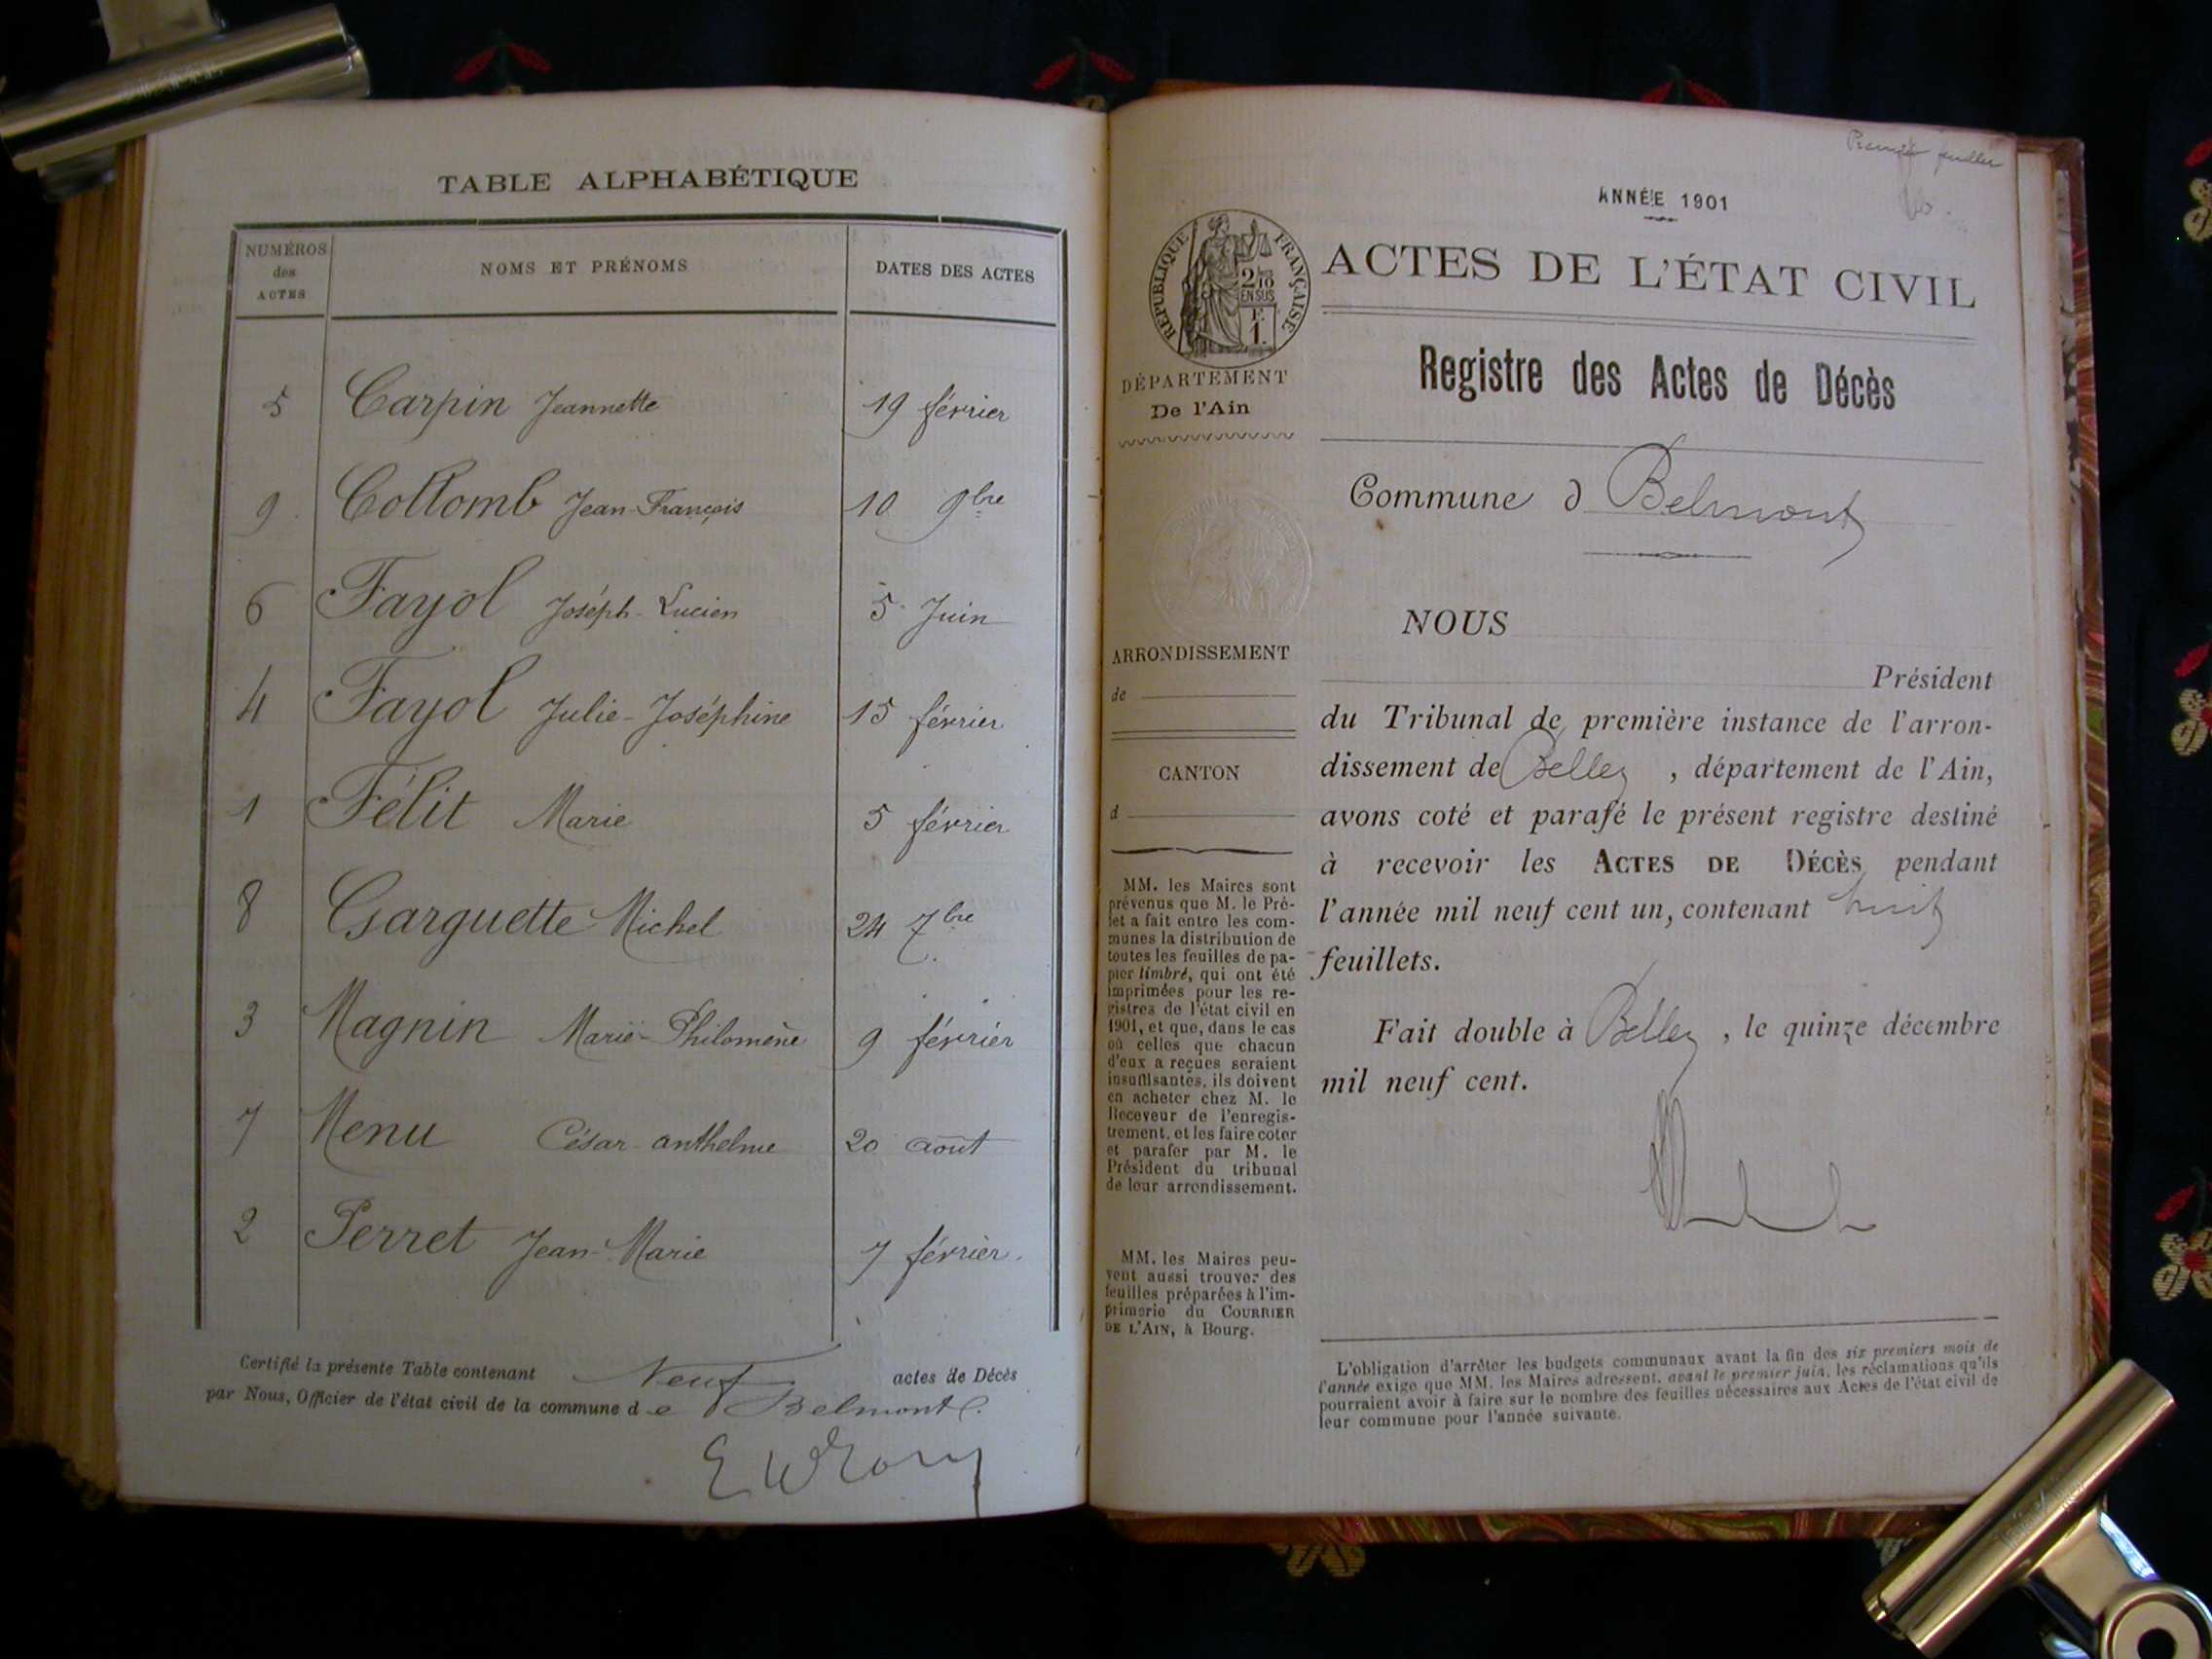 TABLE ALPHABÉTIQUE
NUMÉROS
des
ACTES
NOMS ET PRÉNOMS
DATES DES ACTES
5 Carpin Jeannette 19 février
9 Collomb Jean-François 10 9bre
6 Fayol Joséph-Lucien 5 Juin
4 Fayol Julie-Joséphine 15 février
1 Félit Marie 5 février
8 Garguette Michel 24 7bre
3 Magnin Marie-Philomène 9 février
7 Menu César-anthelme 20 août
2 Perret Jean-Marie 7 février.
Certifié la présente Table contenant Neuf actes de Décès
par Nous, Officier de l'état civil de la commune de Belmont.
ANNÉE 1901
RÉPUBLIQUE FRANÇAISE
2/10
EN SUS
F
1.
ACTES DE L'ÉTAT CIVIL
Registre des Actes de Décès
DÉPARTEMENT
De l'Ain
Commune d Belmont
ARRONDISSEMENT
de
CANTON
d
MM. les Maires sont
prévenus que M. le Pré-
fet a fait entre les com-
munes la distribution de
toutes les feuilles de pa-
pier timbré, qui ont été
imprimées pour les re-
gistres de l'état civil en
1901, et que, dans le cas
où celles que chacun
d'eux a reçues seraient
insuffisantes, ils doivent
en acheter chez M. le
Receveur de l'enregis-
trement, et les faire coter
et parafer par M. le
Président du tribunal
de leur arrondissement.
MM. les Maires peu-
vent aussi trouver des
feuilles préparées à l'im-
primerie du COURRIER
DE L'AIN, à Bourg.
NOUS
Président
du Tribunal de première instance de l'arron-
dissement de Belley, département de l'Ain,
avons coté et parafé le présent registre destiné
à recevoir les ACTES DE DÉCÈS pendant
l'année mil neuf cent un, contenant huit
feuillets.
Fait double à Belley, le quinze décembre
mil neuf cent.
L'obligation d'arrêter les budgets communaux avant la fin des six premiers mois de
l'année exige que MM. les Maires adressent, avant le premier juin, les réclamations qu'ils
pourraient avoir à faire sur le nombre des feuilles nécessaires aux Actes de l'état civil de
leur commune pour l'année suivante.